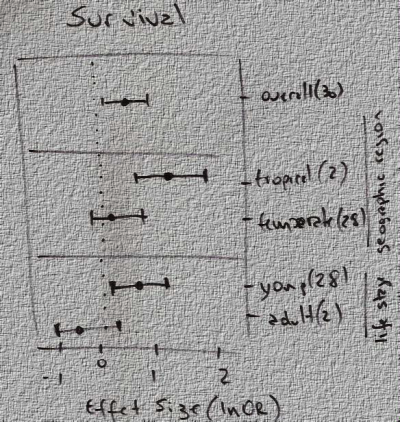 Survival
overall (30)
tropical (2)
temperate (28)
geographic region
young (28)
adult (2)
life stag
-1 0 1 2
Effect Size (lnOR)